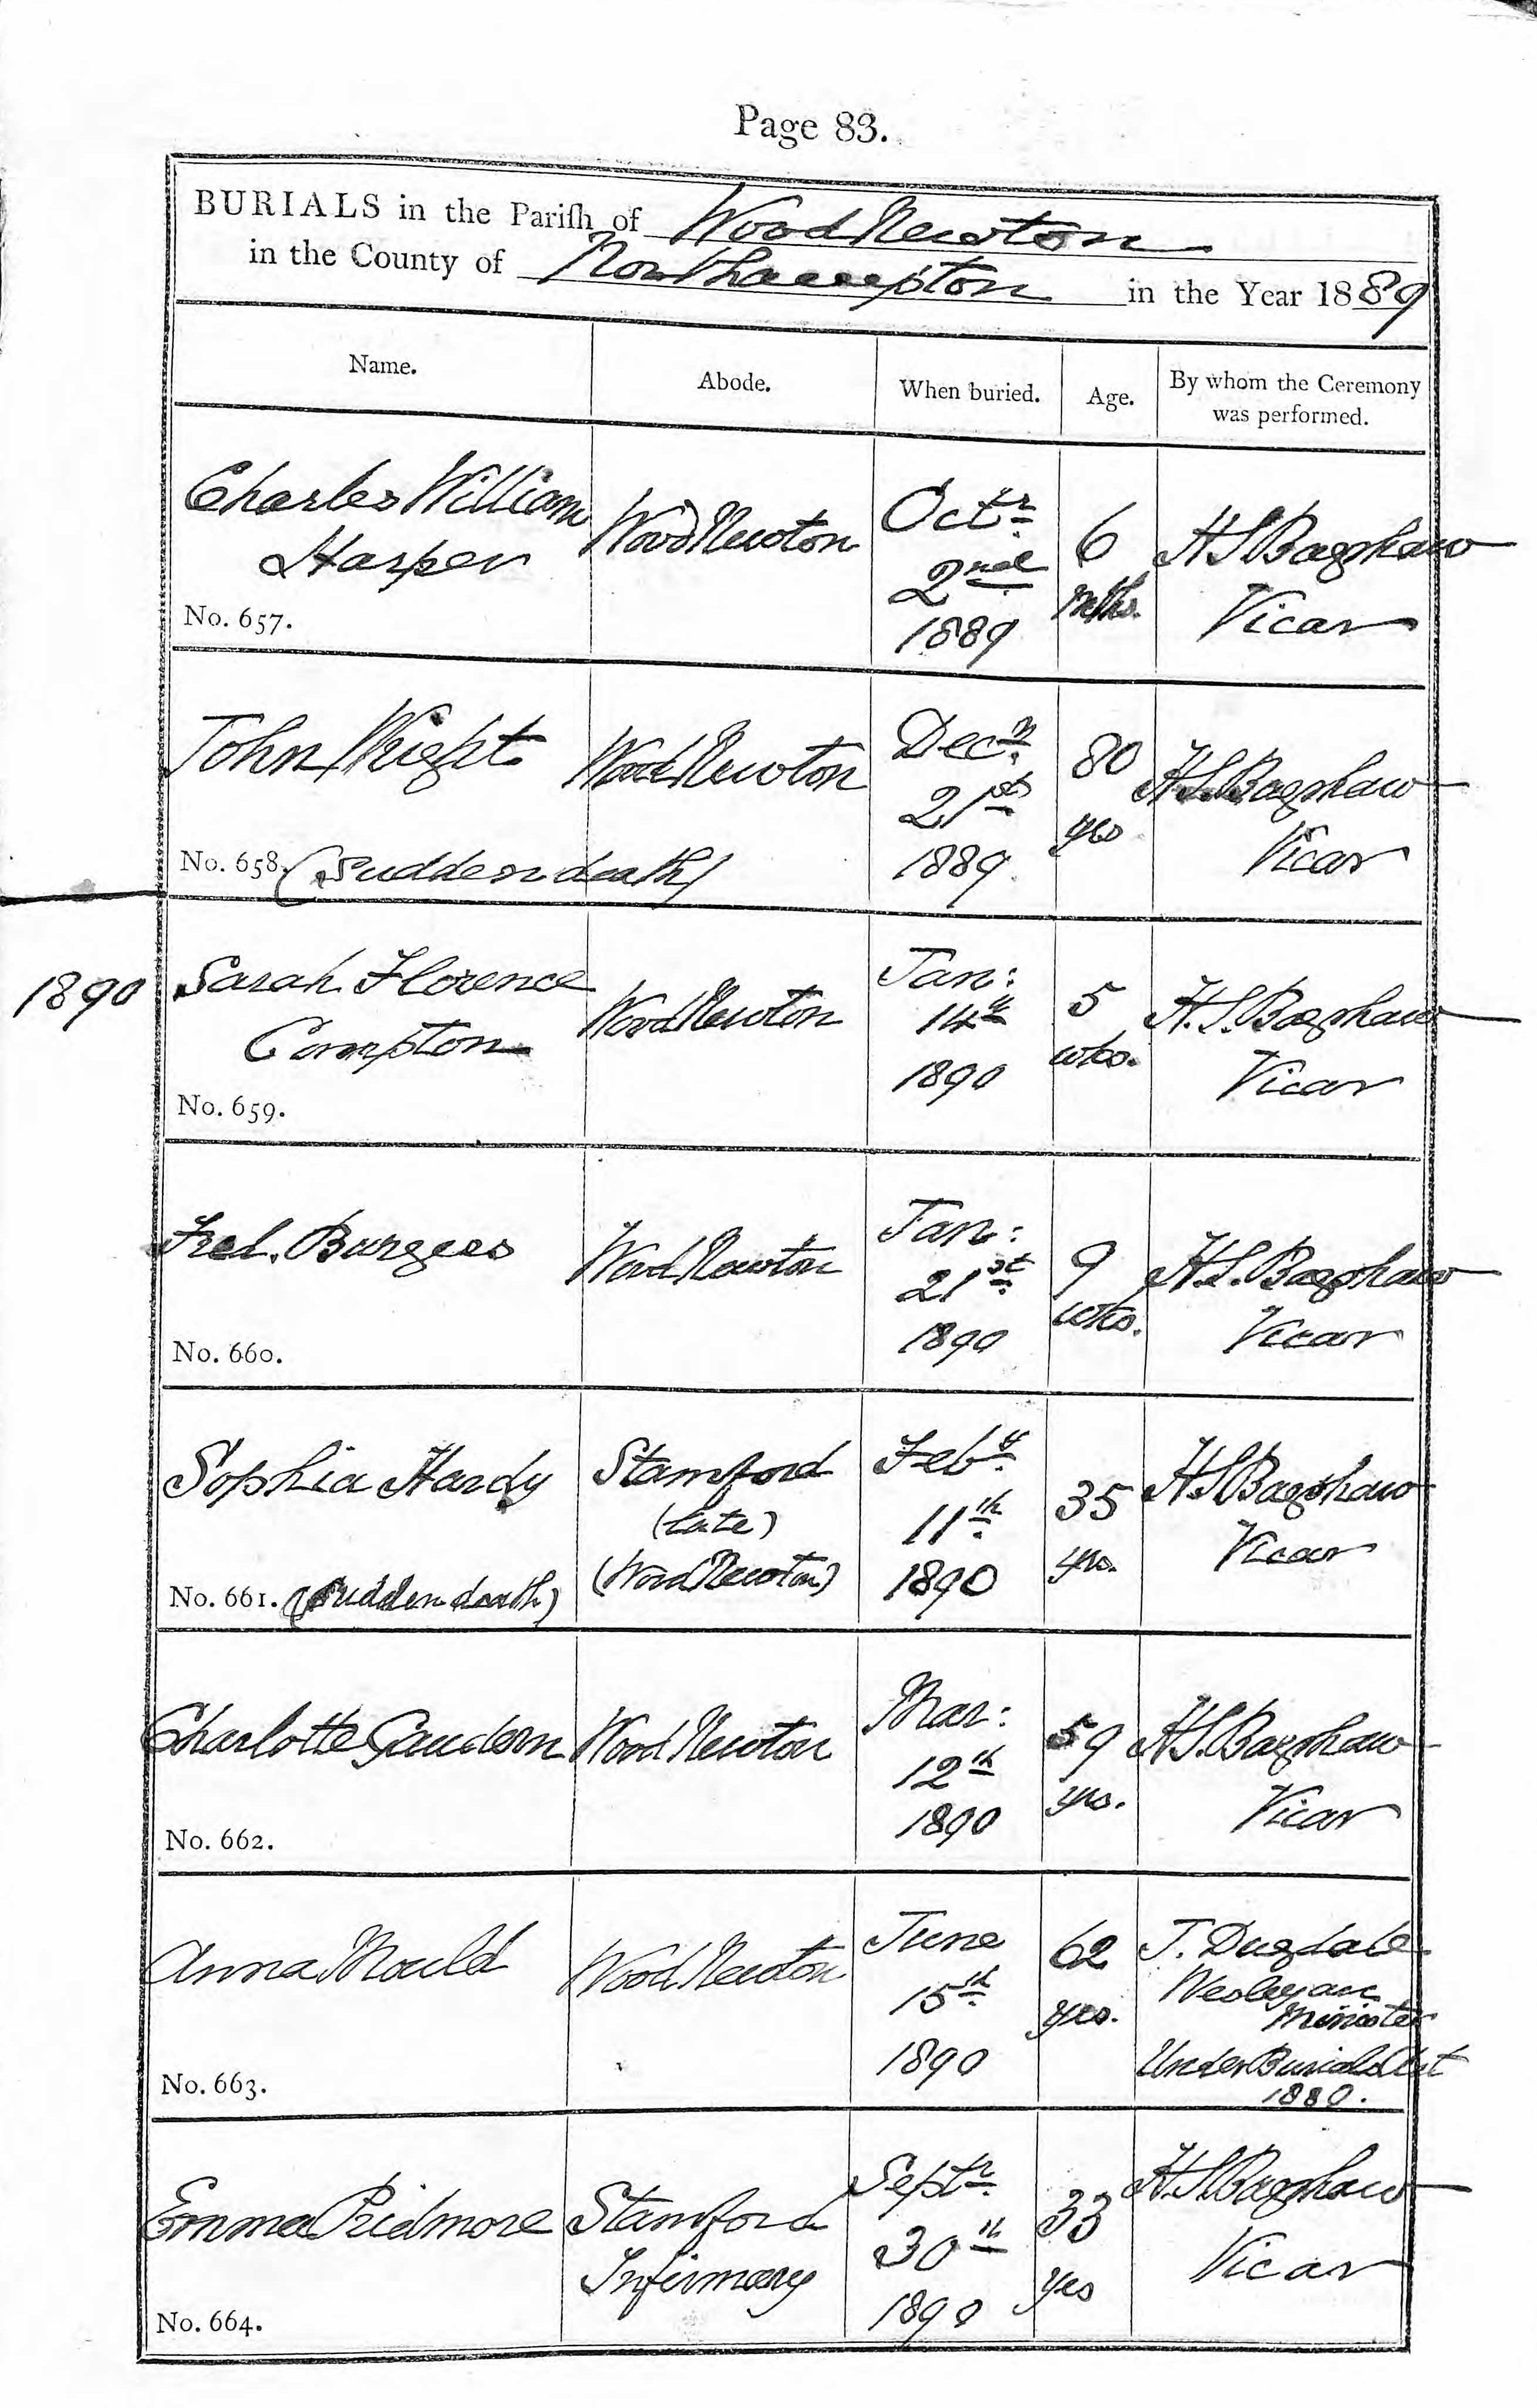 Page 83.
BURIALS in the Pariſh of Wood Newton
in the County of Northampton in the Year 1889
Name. Abode. When buried. Age. By whom the Ceremony was performed.
Charles William Harper
Wood Newton
Octr
2nd
1889
6
Mths.
H S Bagshaw
Vicar
No. 657.
John Wright
Wood Newton
Decr
21st
1889.
80
yrs
H.S. Bagshaw
Vicar
No. 658. (sudden death)
1890
Sarah Florence
Compton
Wood Newton
Jan:
14th
1890
5
wks.
H. S. Bagshaw
Vicar
No. 659.
Fred. Burgess
Wood Newton
Jan:
21st
1890
9
wks.
H. S. Bagshaw
Vicar
No. 660.
Sophia Hardy
Stamford
(late)
(Wood Newton)
Feby
11th
1890
35
yrs.
H S Bagshaw
Vicar
No. 661. (sudden death)
Charlotte Gaudern
Wood Newton
Mar:
12th
1890
59
yrs.
H S. Bagshaw
Vicar
No. 662.
Anna Mould
Wood Newton
June
15th
1890
62
yrs.
J. Dugdale
Wesleyan
Minister
Under Burials Act
1880.
No. 663.
Emma Pridmore
Stamford
Infirmary
Septr
30th
1890
33
yrs
H. S. Bagshaw
Vicar
No. 664.